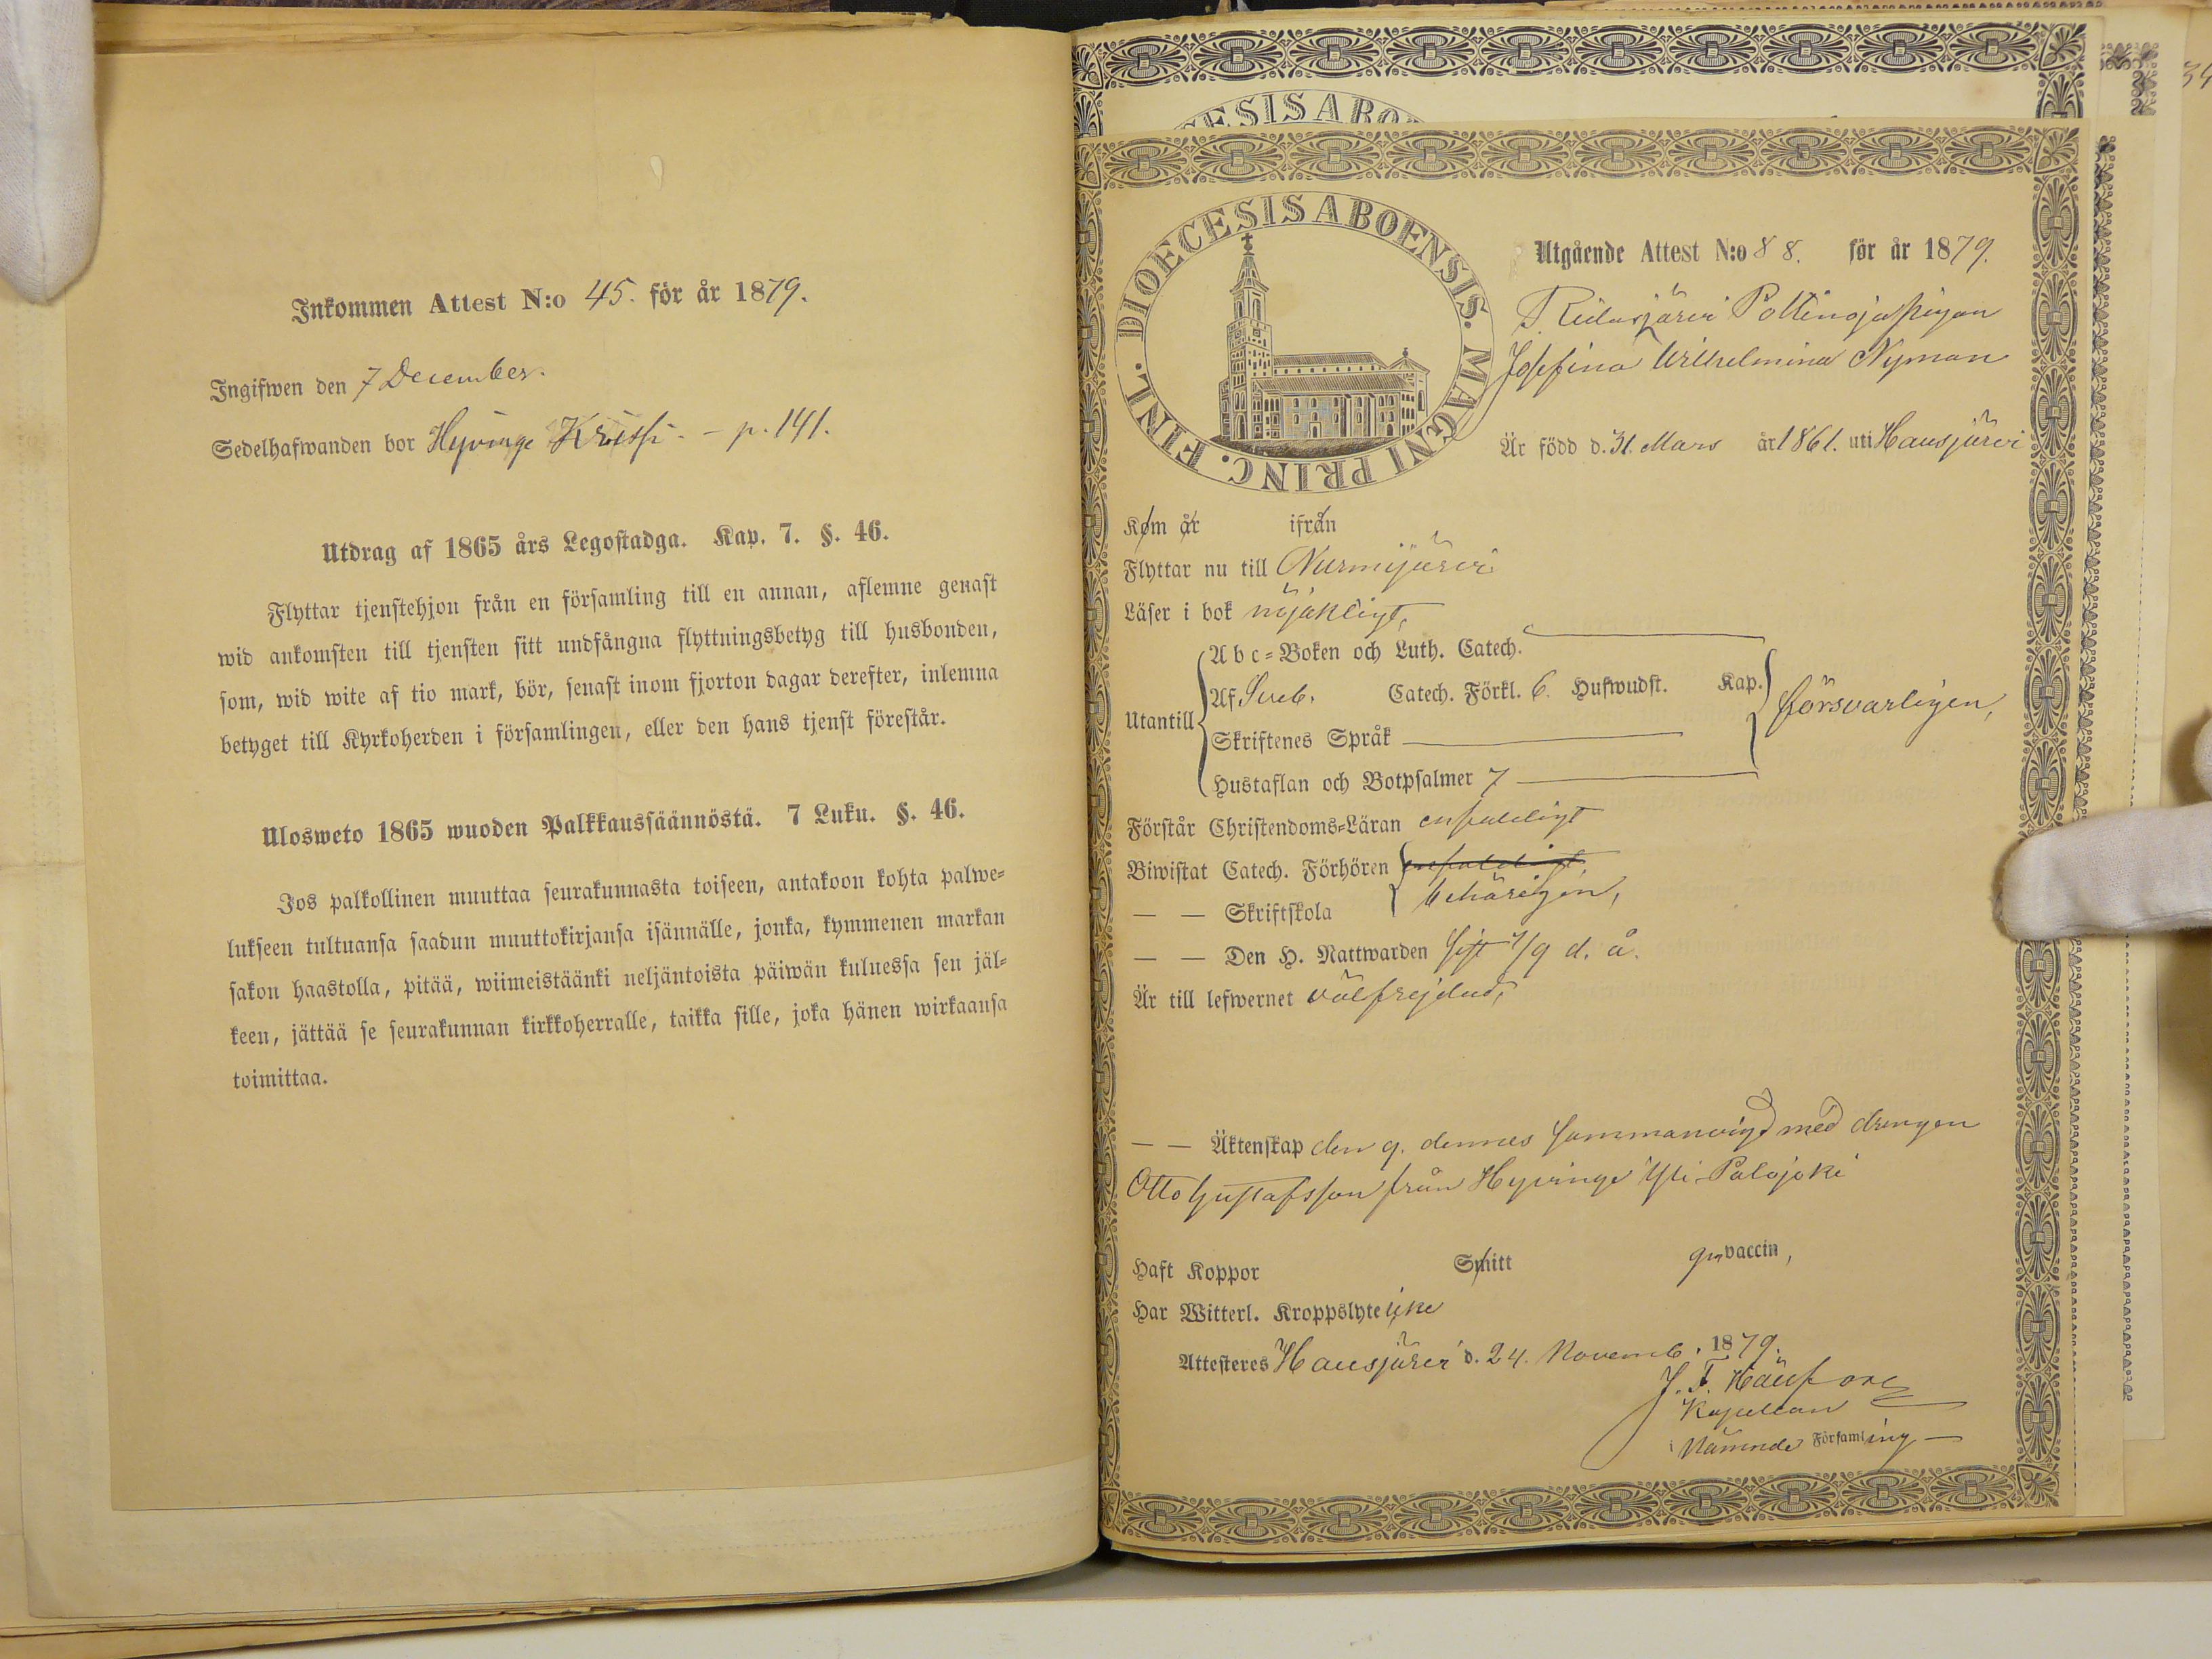 Inkommen Attest N:o 45. för år 1879.
Ingifwen den 7 December.
Sedelhafwanden bor Hyvinge Krissi. – p. 141.
Utdrag af 1865 års Legostadga. Kap. 7. §. 46.
Flyttar tjenstehjon från en församling till en annan, aflemne genast
wid ankomsten till tjensten sitt undfångna flyttningsbetyg till husbonden,
som, wid wite af tio mark, bör, senast inom fjorton dagar derefter, inlemna
betyget till Kyrkoherden i församlingen, eller den hans tjenst förestår.
Ulosweto 1865 wuoden Palkkaussäännöstä. 7 Luku. §. 46.
Jos palkollinen muuttaa seurakunnasta toiseen, antakoon kohta palwe-
lukseen tultuansa saadun muuttokirjansa isännälle, jonka, kymmenen markan
sakon haastolla, pitää, wiimeistäänki neljäntoista päiwän kuluessa sen jäl-
keen, jättää se seurakunnan kirkkoherralle, taikka sille, joka hänen wirkaansa
toimittaa.
34
ESIS ABO
DIOECESIS ABOENSIS. MAGNI PRINC. FINL.
Utgående Attest N:o 88. för år 1879.
Pottinoja pigan
Josefina Wilhelmina Nyman
Är född d. 31. Mars år 1861. uti Hausjärvi
Kom år ifrån
Flyttar nu till Nurmijärvi
Läser i bok nöjaktigt,
Utantill
Abc-Boken och Luth. Catech.
Af Sveb. Catech. Förkl. 6. Hufwudst. Kap.
försvarligen,
Skriftenes Språk
Hustaflan och Botpsalmer 7
Förstår Christendoms-Läran enfaldigt
Biwistat Catech. Förhören enfaldigt
— — Skriftskola behörigen,
— — Den H. Nattwarden sist 7/9 d. å.
Är till lefwernet välfrejdad,
— — Äktenskap den 9. dennes sammanvigd med drengen
Otto Gustafsson från Hyvinge Yli-Palojoki
Haft Koppor Smitt gm vaccin,
Har Witterl. Kroppslyte icke
Attesteres Hausjärvi d. 24. Novemb. 1879.
J. F.
Kapellan
i nämnde Församling